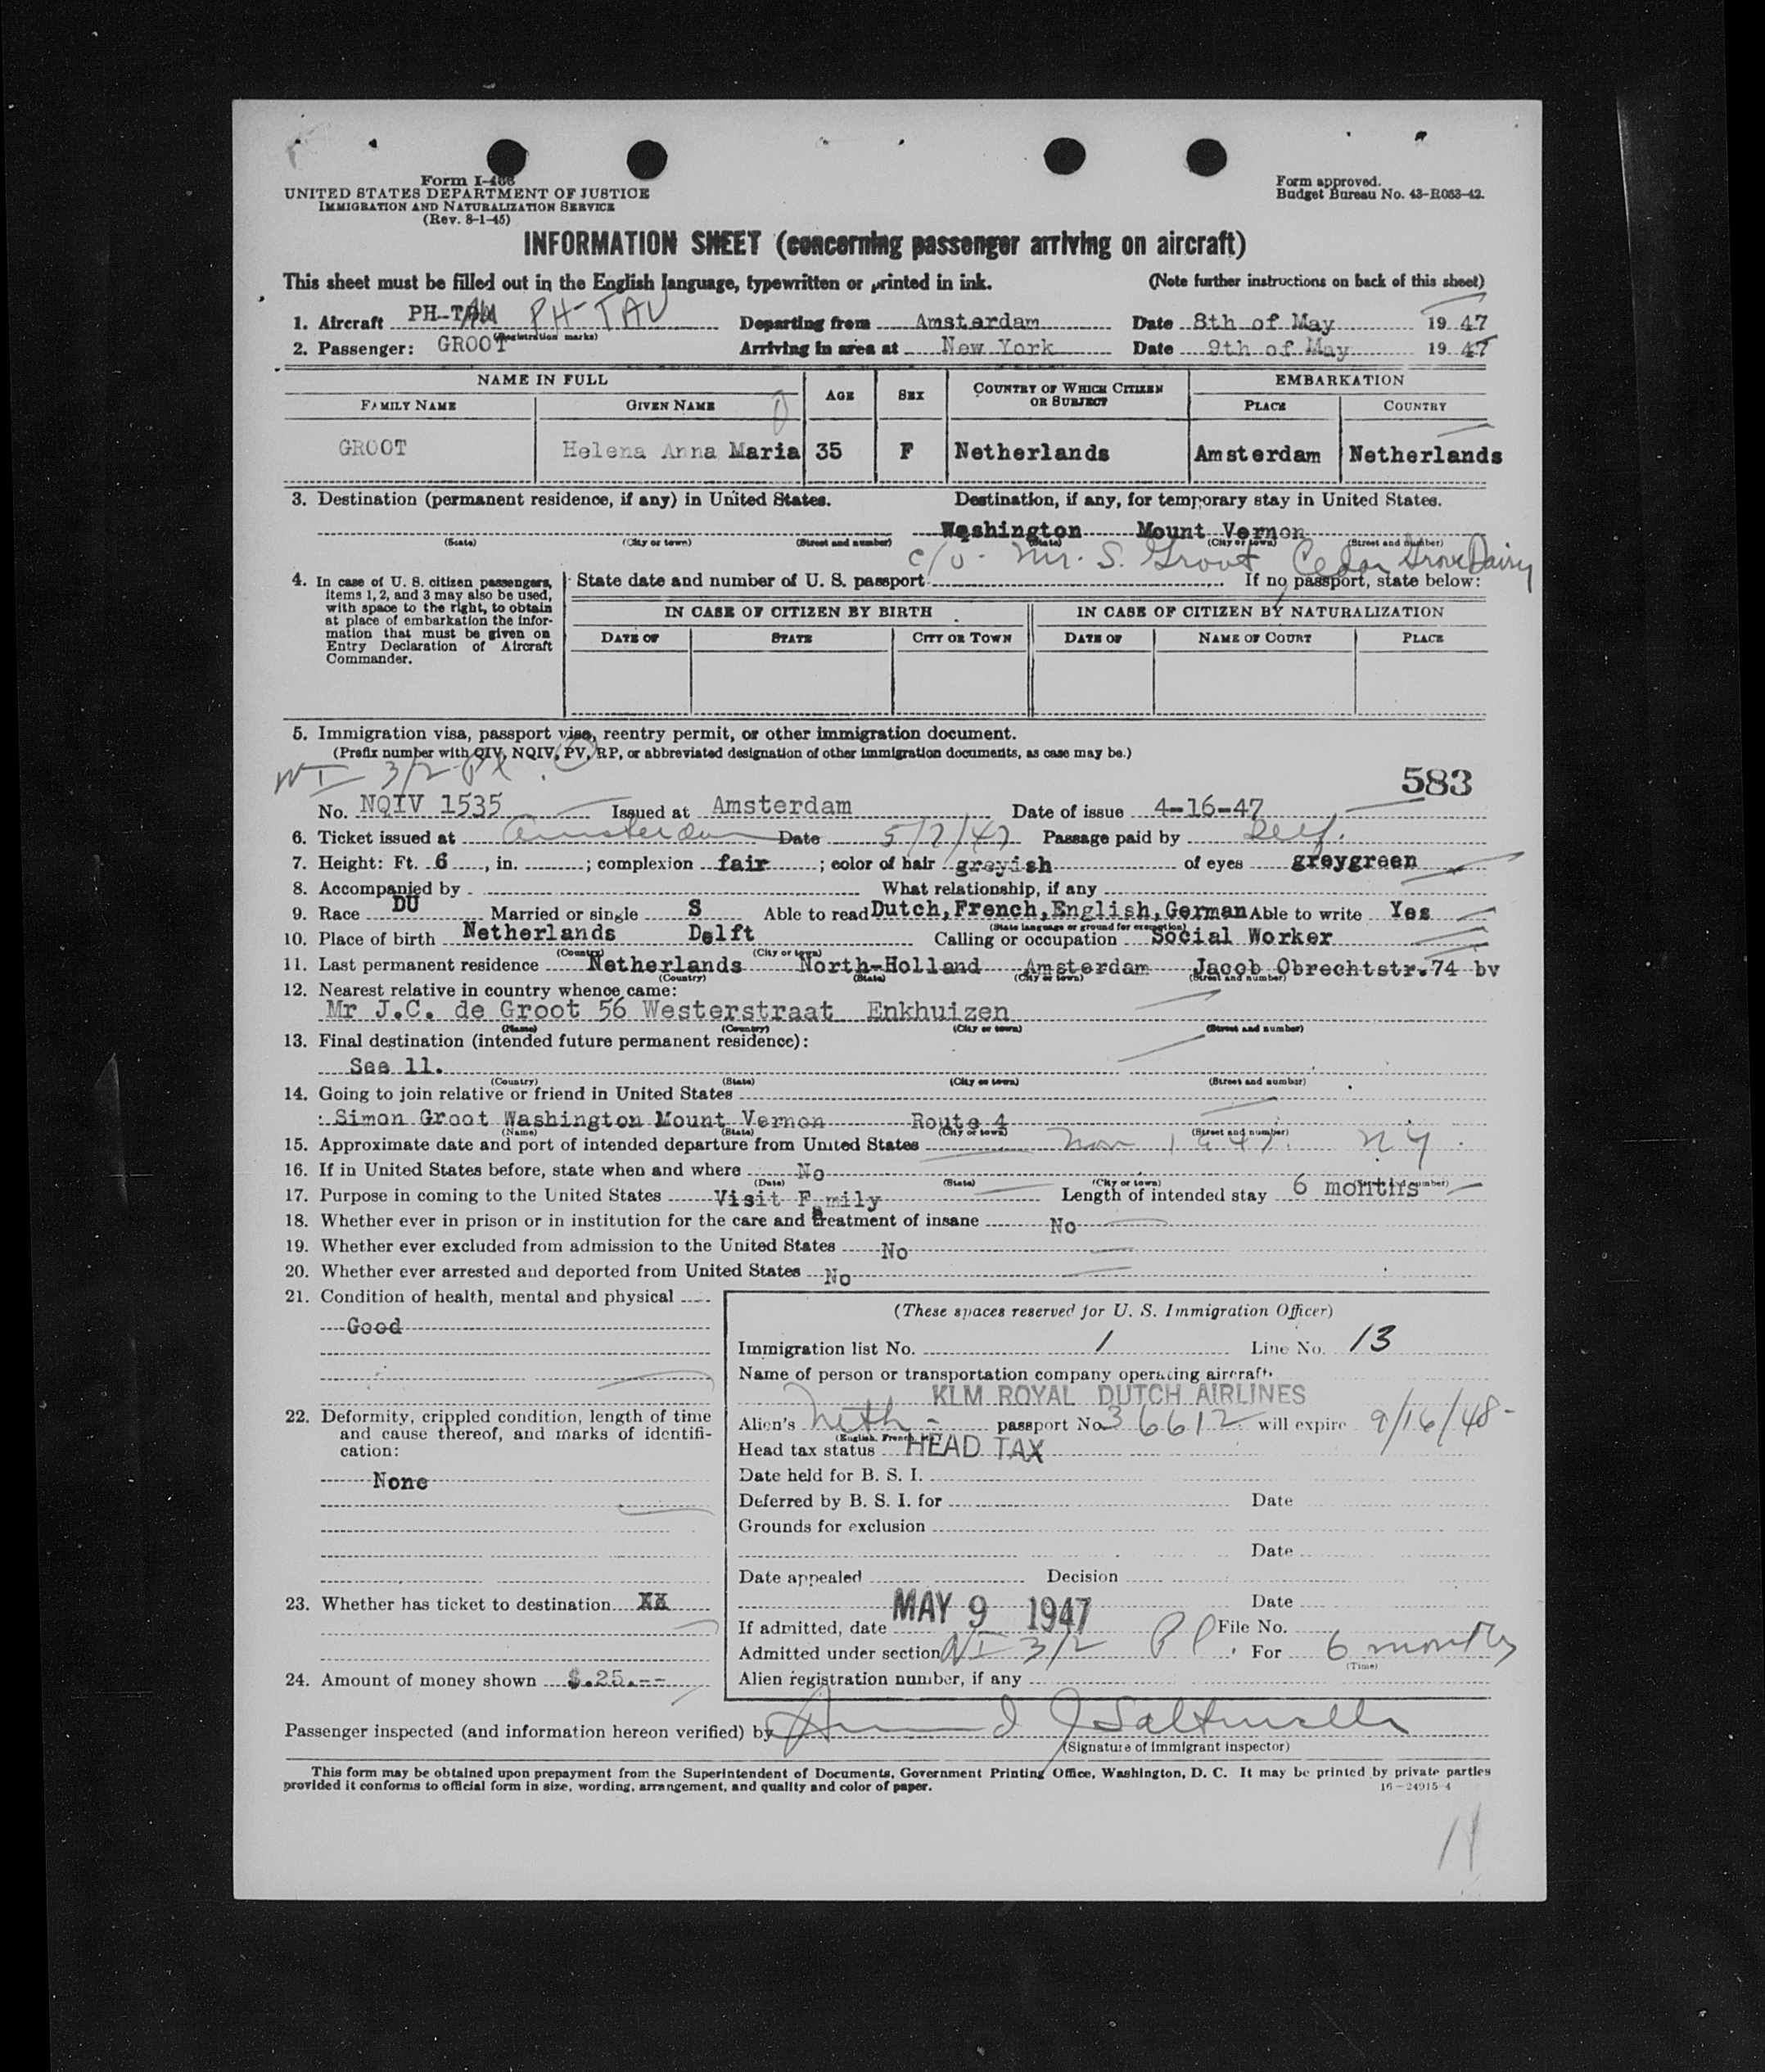 Form I-466
UNITED STATES DEPARTMENT OF JUSTICE
IMMIGRATION AND NATURALIZATION SERVICE
(Rev. 8-1-45)
Form approved.
Budget Bureau No. 43-R083-42.
INFORMATION SHEET (concerning passenger arriving on aircraft)
This sheet must be filled out in the English language, typewritten or printed in ink. (Note further instructions on back of this sheet)
1. Aircraft PH-TAU PH-TAU Departing from Amsterdam Date 8th of May 19 47
(Registration marks)
2. Passenger: GROOT Arriving in area at New York Date 9th of May 19 47
NAME IN FULL AGE SEX COUNTRY OF WHICH CITIZEN OR SUBJECT EMBARKATION
FAMILY NAME GIVEN NAME PLACE COUNTRY
GROOT Helena Anna Maria 35 F Netherlands Amsterdam Netherlands
3. Destination (permanent residence, if any) in United States. Destination, if any, for temporary stay in United States.
Washington Mount Vernon
(State) (City or town) (Street and number) (State) (City or town) (Street and number)
c/o Mr. S. Groot Cedar Grove Dairy
4. In case of U. S. citizen passengers, items 1, 2, and 3 may also be used, with space to the right, to obtain at place of embarkation the information that must be given on Entry Declaration of Aircraft Commander.
State date and number of U. S. passport If no passport, state below:
IN CASE OF CITIZEN BY BIRTH IN CASE OF CITIZEN BY NATURALIZATION
DATE OF STATE CITY OR TOWN DATE OF NAME OF COURT PLACE
5. Immigration visa, passport visa, reentry permit, or other immigration document.
(Prefix number with QIV, NQIV, PV, RP, or abbreviated designation of other immigration documents, as case may be.)
583
No. NQIV 1535 Issued at Amsterdam Date of issue 4-16-47
6. Ticket issued at Amsterdam Date 5/7/47 Passage paid by Self.
7. Height: Ft. 6, in. ; complexion fair ; color of hair greyish of eyes greygreen
8. Accompanied by - What relationship, if any
9. Race DU Married or single S Able to read Dutch, French, English, German Able to write Yes
(State language or ground for exemption)
10. Place of birth Netherlands Delft Calling or occupation Social Worker
(Country) (City or town)
11. Last permanent residence Netherlands North-Holland Amsterdam Jacob Obrechtstr. 74 bv
(Country) (State) (City or town) (Street and number)
12. Nearest relative in country whence came:
Mr J.C. de Groot 56 Westerstraat Enkhuizen
(Name) (Country) (City or town) (Street and number)
13. Final destination (intended future permanent residence):
See 11.
(Country) (State) (City or town) (Street and number)
14. Going to join relative or friend in United States
Simon Groot Washington Mount Vernon Route 4
(Name) (State) (City or town) (Street and number)
15. Approximate date and port of intended departure from United States Nov 1947. N Y.
16. If in United States before, state when and where No
(Date) (State) (City or town) (Street and number)
17. Purpose in coming to the United States Visit Family Length of intended stay 6 months
18. Whether ever in prison or in institution for the care and treatment of insane No
19. Whether ever excluded from admission to the United States No
20. Whether ever arrested and deported from United States No
21. Condition of health, mental and physical
Good
22. Deformity, crippled condition, length of time and cause thereof, and marks of identification:
None
23. Whether has ticket to destination XX
24. Amount of money shown $.25.--
(These spaces reserved for U. S. Immigration Officer)
Immigration list No. 1 Line No. 13
Name of person or transportation company operating aircraft.
KLM ROYAL DUTCH AIRLINES
Alien's Neth- passport No. 36612 will expire 9/16/48-
(English, French, etc.)
Head tax status HEAD TAX
Date held for B. S. I.
Deferred by B. S. I. for Date
Grounds for exclusion
Date
Date appealed Decision
Date
If admitted, date MAY 9 1947 File No.
Admitted under section 3/2 For 6 months
(Time)
Alien registration number, if any
Passenger inspected (and information hereon verified) by
(Signature of immigrant inspector)
This form may be obtained upon prepayment from the Superintendent of Documents, Government Printing Office, Washington, D. C. It may be printed by private parties
provided it conforms to official form in size, wording, arrangement, and quality and color of paper.
16-24915-4